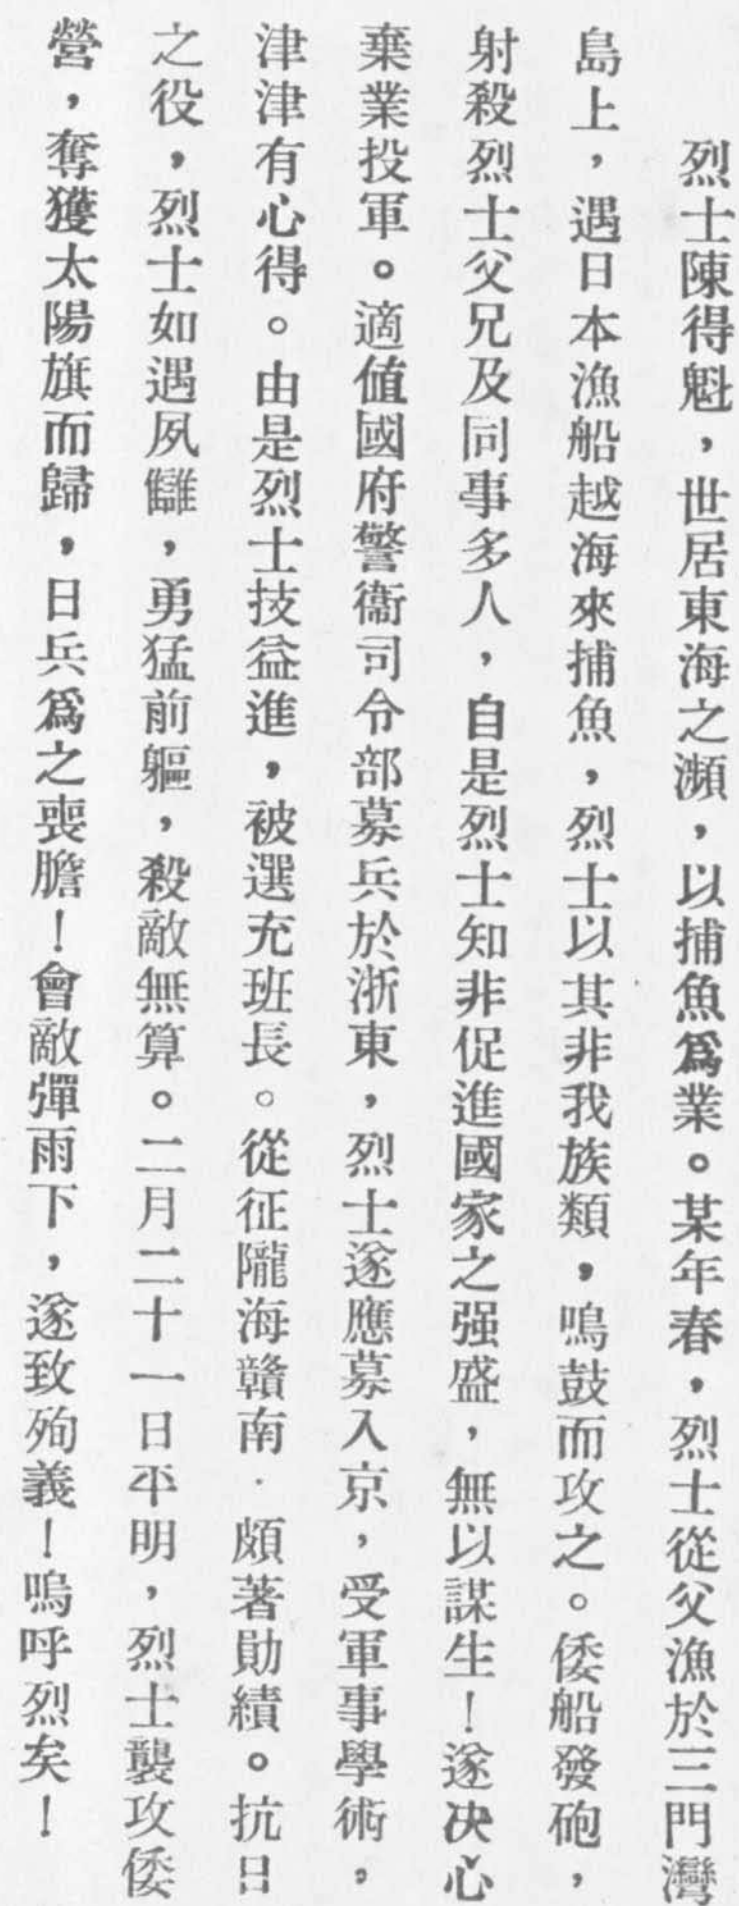 烈士陳得魁，世居東海之瀕，以捕魚爲業。某年春，烈士從父漁於三門灣
島上，遇日本漁船越海來捕魚，烈士以其非我族類，鳴鼓而攻之。倭船發砲，
射殺烈士父兄及同事多人，自是烈士知非促進國家之强盛，無以謀生！遂决心
棄業投軍。適值國府警衞司令部募兵於浙東，烈士遂應募入京，受軍事學術，
津津有心得。由是烈士技益進，被選充班長。從征隴海贛南．頗著勛績。抗日
之役，烈士如遇夙讎，勇猛前軀，殺敵無算。二月二十一日平明，烈士襲攻倭
營，奪獲太陽旗而歸，日兵爲之喪膽！會敵彈雨下，遂致殉義！嗚呼烈矣！